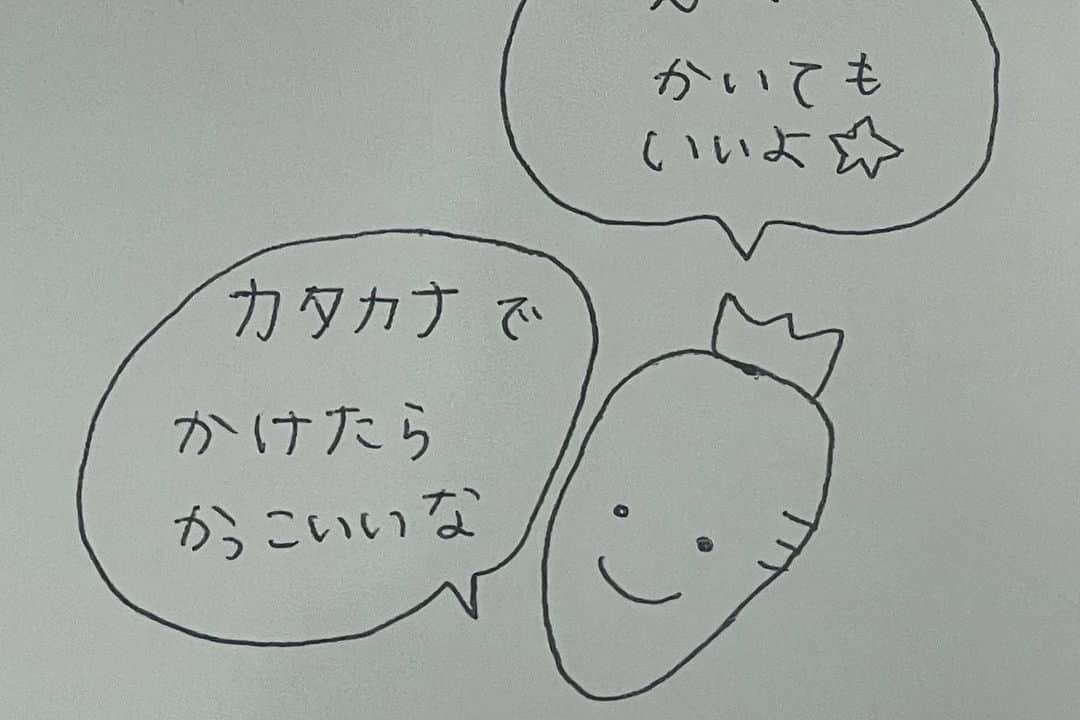 かいても
いいよ☆
カタカナで
かけたら
かっこいいな